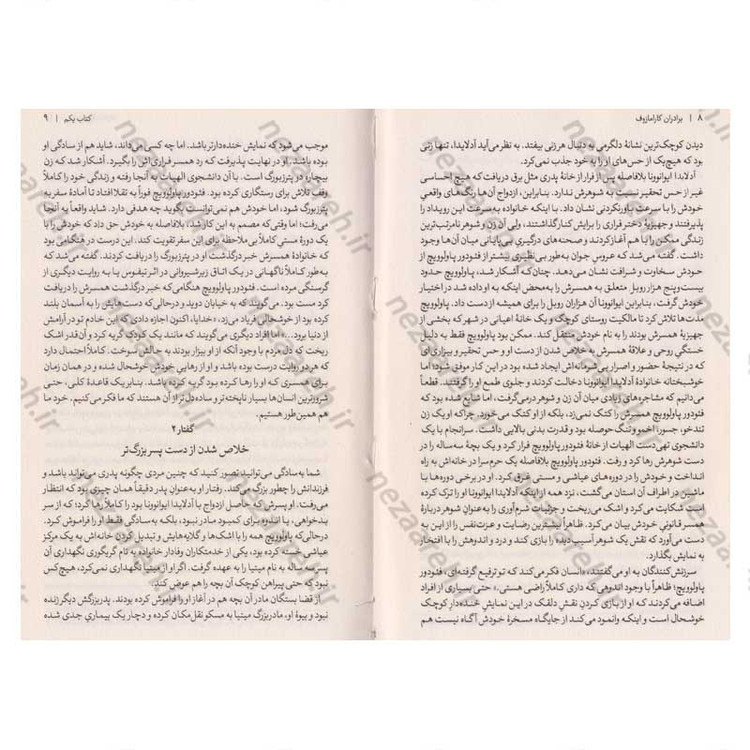 ۸ | برادران کارامازوف
دیدن کوچک‌ترین نشانهٔ دلگرمی به دنبال هر زنی بیفتد. به نظر می‌آید آدلایدا، تنها زنی
بود که هیچ‌یک از حس‌های او را به خود جذب نمی‌کرد.
آدلایدا ایوانوونا بلافاصله پس از فرار از خانهٔ پدری مثل برق دریافت که هیچ احساسی
غیر از حس تحقیر نسبت به شوهرش ندارد. بنابراین، ازدواج آن‌ها رنگ‌های واقعیِ
خودش را با سرعت باورنکردنی نشان داد. با اینکه خانواده به‌سرعت این رویداد را
پذیرفتند و جهیزیهٔ دختر فراری را برایش کنار گذاشتند، ولی آن زن و شوهر نامرتب‌ترین
زندگی ممکن را با هم آغاز کردند و صحنه‌های درگیریِ بی‌پایانی میان آن‌ها وجود
داشت. گفته می‌شد که عروسِ جوان به‌طور بی‌نظیری بیشتر از فئودور پاولوویچ از
خودش سخاوت و شرافت نشان می‌دهد. چنان‌که آشکار شد، پاولوویچ حدود
بیست‌وپنج هزار روبل متعلق به همسرش را به‌محض اینکه به او داده شد در اختیار
خودش گرفت، بنابراین ایوانوونا آن هزاران روبل را برای همیشه از دست داد.
مدت‌ها تلاش کرد تا مالکیت روستای کوچک و یک خانهٔ اعیانی در شهر که بخشی از
جهیزیهٔ همسرش بودند را به نام خودش منتقل کند. ممکن بود پاولوویچ فقط به دلیل
خستگیِ روحی و علاقهٔ همسرش به خلاص شدن از دست او و حس تحقیر و بیزاری‌ای
که در نتیجهٔ حضور و اصرار بی‌شرمانه‌اش ایجاد شده بود در این کار موفق شود؛ اما
خوشبختانه خانوادهٔ آدلایدا ایوانوونا دخالت کردند و جلوی طمع او را گرفتند. قطعاً
می‌دانیم که مشاجره‌های زیادی میان آن زن و شوهر درمی‌گرفت، اما شایع شده بود که
فئودور پاولوویچ همسرش را کتک نمی‌زد، بلکه از او کتک می‌خورد، چراکه او یک زن
تندخو، جسور، اخمو و تنگ حوصله بود و قدرت بدنی بالایی داشت. سرانجام با یک
دانشجوی تهی‌دست الهیات از خانهٔ فئودور پاولوویچ فرار کرد و یک بچهٔ سه‌ساله را در
دست شوهرش رها کرد و رفت. فئودور پاولوویچ بلافاصله یک حرم‌سرا در خانه‌اش به راه
انداخت و خودش را در دوره‌های عیاشی و مستی غرق کرد. او در برخی دوره‌ها با
ماشین در اطراف آن استان می‌گشت، نزد همه از اینکه آدلایدا ایوانوونا او را ترک کرده
است شکایت می‌کرد و اشک می‌ریخت و جزئیات شرم‌آوری را به‌عنوان شوهر دربارهٔ
همسر قانونی خودش بیان می‌کرد. ظاهراً بیشترین رضایت و عزت‌نفس را از این به
دست می‌آورد که نقش یک شوهر آسیب‌دیده را بازی کند و درد و اندوهش را با افتخار
به نمایش بگذارد.
سرزنش‌کنندگان به او می‌گفتند، «انسان فکر می‌کند که تو ترفیع گرفته‌ای، فئودور
پاولوویچ؛ ظاهراً با وجود اندوهی که داری کاملاً راضی هستی.» حتی بسیاری از افراد
اضافه می‌کردند که او از بازی کردن نقش دلقک در این نمایش خنده‌دارِ کوچک
خوشحال است و اینکه وانمود می‌کند از جایگاه مسخرهٔ خودش آگاه نیست هم
کتاب یکم | ۹
موجب می‌شود که نمایش خنده‌دارتر باشد. اما چه کسی می‌داند، شاید هم از سادگی او
بوده باشد. او در نهایت پذیرفت که رد همسر فراری‌اش را بگیرد. آشکار شد که زن
بیچاره در پترزبورگ است، که با آن دانشجوی الهیات به آنجا رفته و زندگی خود را کاملاً
وقف تلاش برای رستگاری کرده بود. فئودور پاولوویچ فوراً به تقلا افتاد تا آمادهٔ سفر به
پترزبورگ شود، اما خودش هم نمی‌توانست بگوید چه هدفی دارد. شاید واقعاً به آنجا
می‌رفت؛ اما وقتی که مصمم به این کار شد، بلافاصله به خودش حق داد که خودش را با
یک دورهٔ مستیِ کاملاً بی‌ملاحظه برای این سفر تقویت کند. این درست در هنگامی بود
که خانوادهٔ همسرش خبر درگذشت او در پترزبورگ را دریافت کردند. گفته می‌شد که
به‌طور کاملاً ناگهانی در یک اتاق زیرشیروانی در اثر تیفوس یا به روایت دیگری از
گرسنگی مرده است. فئودور پاولوویچ هنگامی‌که خبر درگذشت همسرش را دریافت
کرد مست بود. می‌گویند که به خیابان دوید و درحالی‌که دست‌هایش را به آسمان بلند
کرده بود از خوشحالی فریاد می‌زد، «خدایا، اکنون اجازه دادی که این خادم تو در آرامش
از دنیا برود...» اما افراد دیگری می‌گویند که مانند یک کودک گریه کرد و آن‌قدر اشک
ریخت که دل مردم با وجود آنکه از او بیزار بودند به حالش سوخت. کاملاً احتمال دارد
که هر دو روایت درست بوده باشد و او از رهاییِ خودش خوشحال شده و در همان زمان
برای همسری که او را رها کرده بود گریه کرده باشد. بنابر یک قاعدهٔ کلی، حتی
شرورترین انسان‌ها بسیار ناپخته‌تر و ساده‌دل‌تر از آن هستند که ما فکر می‌کنیم. خود ما
هم همین‌طور هستیم.
گفتار ۲
خلاص شدن از دست پسر بزرگ‌تر
شما به‌سادگی می‌توانید تصور کنید که چنین مردی چگونه پدری می‌تواند باشد و
فرزندانش را چطور بزرگ می‌کند. رفتار او به‌عنوان پدر دقیقاً همان چیزی بود که انتظار
می‌رفت. او پسرش که حاصل ازدواج با آدلایدا ایوانوونا بود را کاملاً رها کرد؛ که از سر
بدخواهی، یا اندوه برای کمبود مادر نبود، بلکه به‌سادگی فقط او را فراموش کرد.
درحالی‌که پاولوویچ همه را با اشک‌ها و گلایه‌هایش و تبدیل کردن خانه‌اش به یک مرکز
عیاشی خسته کرده بود، یکی از خدمتکاران وفادار خانواده به نام گریگوری نگهداری آن
پسر سه ساله به نام میتیا را به عهده گرفت. اگر او از میتیا نگهداری نمی‌کرد، هیچ‌کس
نبود که حتی پیراهن کوچک آن بچه را هم عوض کند.
از قضا بستگان مادر آن بچه هم در آغاز او را فراموش کرده بودند. پدربزرگش دیگر زنده
نبود و بیوهٔ او، مادربزرگ میتیا به مسکو نقل‌مکان کرده و دچار یک بیماریِ جدی شده